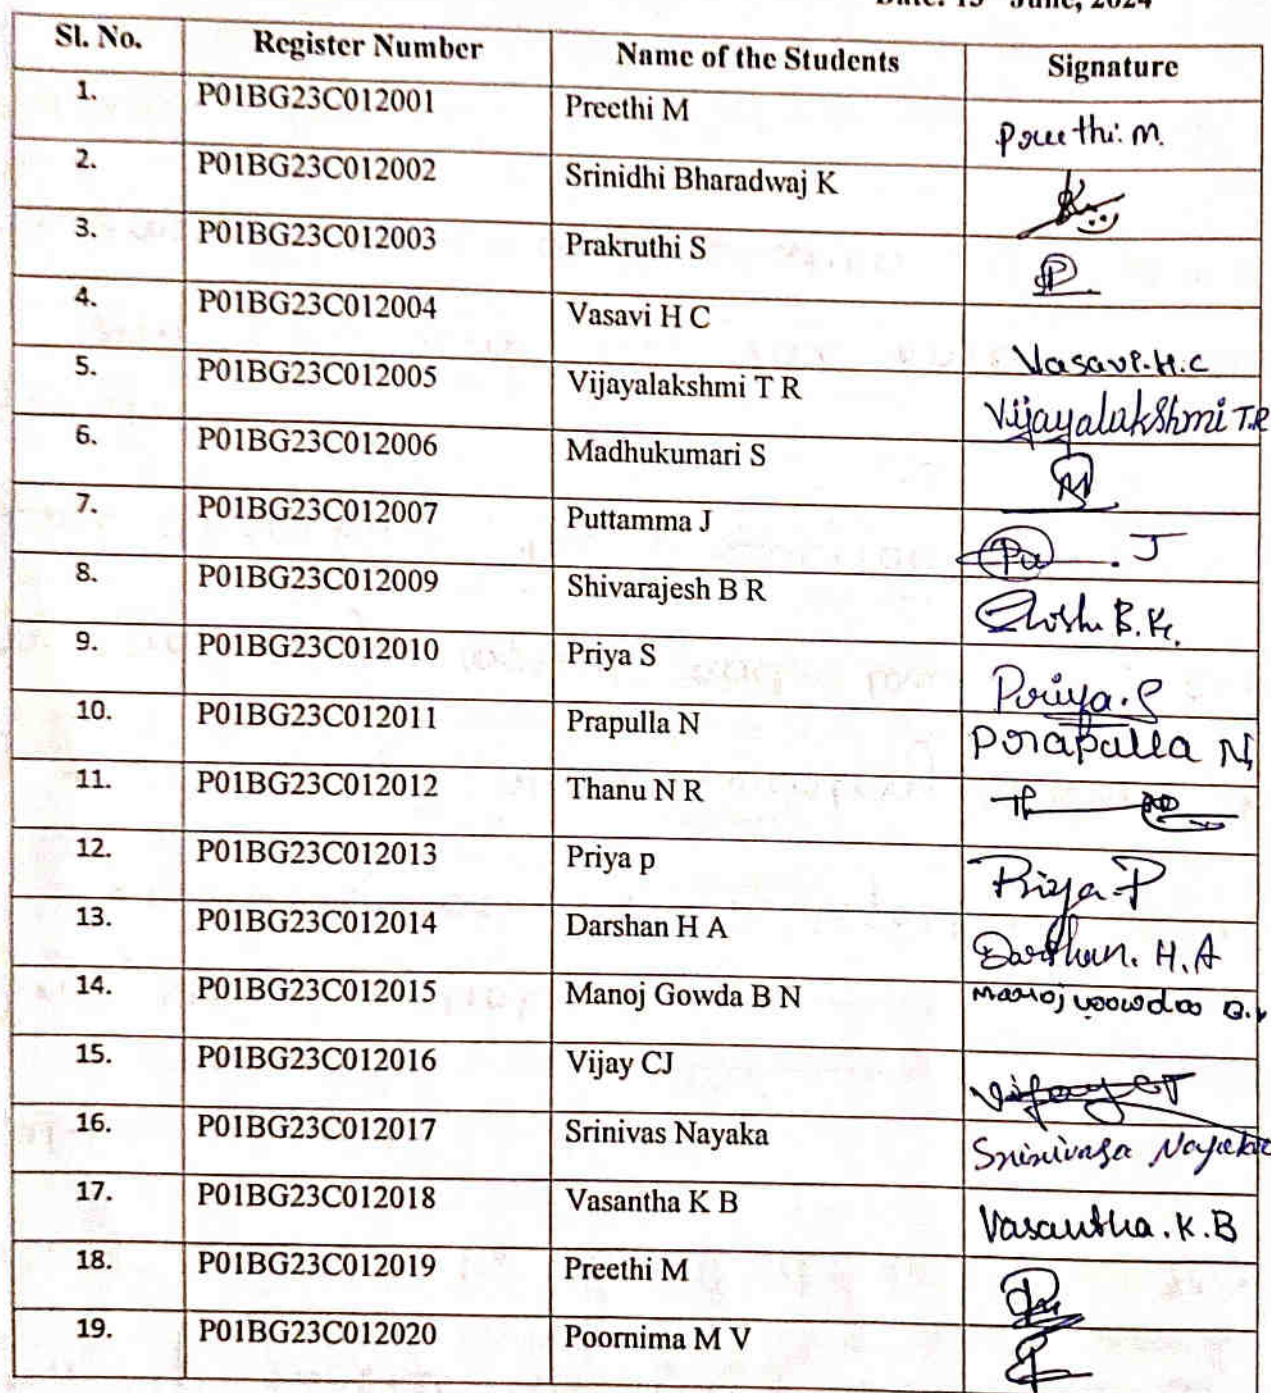 Date: 13 June, 2024
Sl. No. Register Number Name of the Students Signature
1. P01BG23C012001 Preethi M Preethi. M.
2. P01BG23C012002 Srinidhi Bharadwaj K
3. P01BG23C012003 Prakruthi S P
4. P01BG23C012004 Vasavi H C Vasavi.H.C
5. P01BG23C012005 Vijayalakshmi T R Vijayalakshmi T.R
6. P01BG23C012006 Madhukumari S M
7. P01BG23C012007 Puttamma J Pu . J
8. P01BG23C012009 Shivarajesh B R
9. P01BG23C012010 Priya S Priya.S
10. P01BG23C012011 Prapulla N Prapulla N
11. P01BG23C012012 Thanu N R
12. P01BG23C012013 Priya p Priya.P
13. P01BG23C012014 Darshan H A Darshan. H.A
14. P01BG23C012015 Manoj Gowda B N Manoj Gowda B.N
15. P01BG23C012016 Vijay CJ Vijay CJ
16. P01BG23C012017 Srinivas Nayaka Srinivasa Nayaka
17. P01BG23C012018 Vasantha K B Vasantha.K.B
18. P01BG23C012019 Preethi M
19. P01BG23C012020 Poornima M V